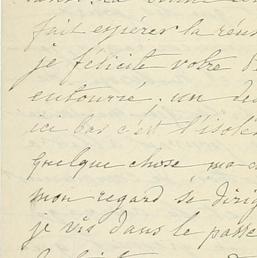 fait espérer la réun
je félicite votre
entourré; un
ici bas c'est l'isole
quelque chose, ma
mon regard se dirig
je vis dans le passé